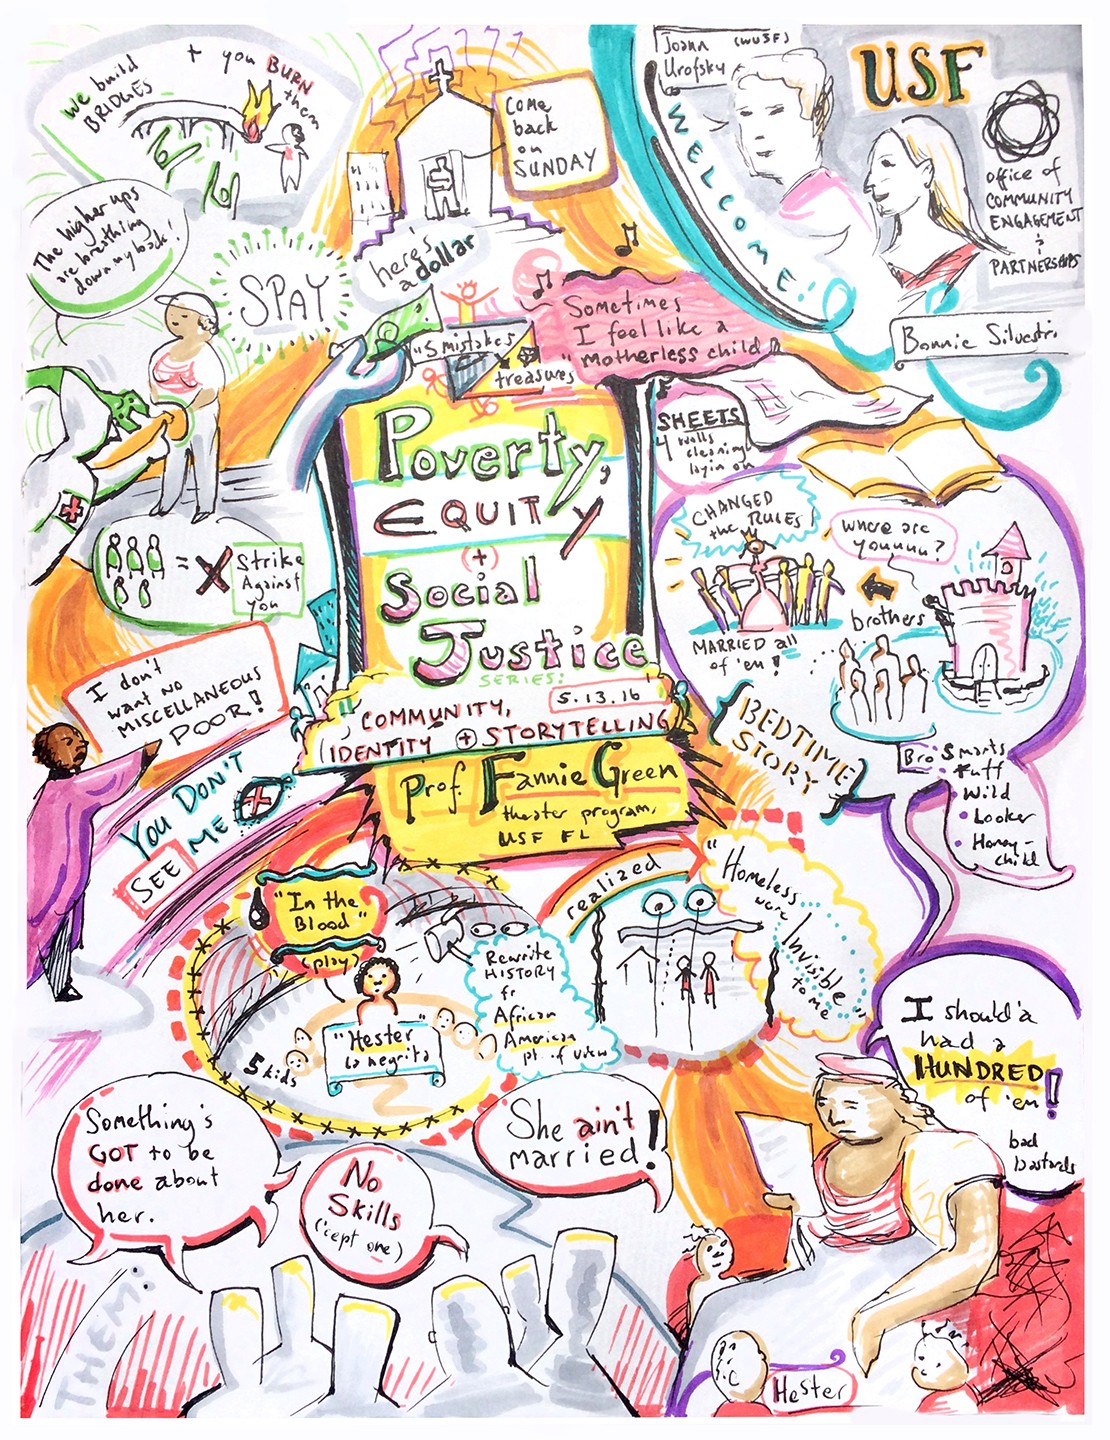 we build
BRIDGES
+ you BURN
them
COME
back
on
SUNDAY
Joann (WUSF)
Urofsky
USF
WELCOME!
office of
COMMUNITY
ENGAGEMENT
&
PARTNERSHIPS
Bonnie Silvestri
The higher ups
are breathing
down my back!
SPAY
here's
a dollar
"5 mistakes
treasures"
Sometimes
I feel like a
"motherless child
SHEETS
4 walls
cleaning
layin on
Poverty,
EQUITY
(+)
Social
Justice
SERIES:
5.13.16
COMMUNITY,
IDENTITY + STORYTELLING
Prof. Fannie Green
theater program,
USF FL
= X Strike
Against
you
CHANGED
the RULES
where are
youuuu?
brothers
MARRIED all
of 'em!
BEDTIME
STORY
Bro: Smarts
Tuff
• Wild
• Looker
• Honey-
child
I don't
want no
MISCELLANEOUS
POOR!
YOU DON'T
SEE ME
"In the
Blood"
(play)
"Hester"
La negrita
5 kids
Rewrite
HISTORY
fr
African
American
pt of view
realized
"Homeless
were
Invisible
to me"
I should'a
had a
HUNDRED
of 'em!
bad
bastards
Something's
GOT to be
done about
her.
No
Skills
('cept one)
She ain't
married!
THEM:
Hester